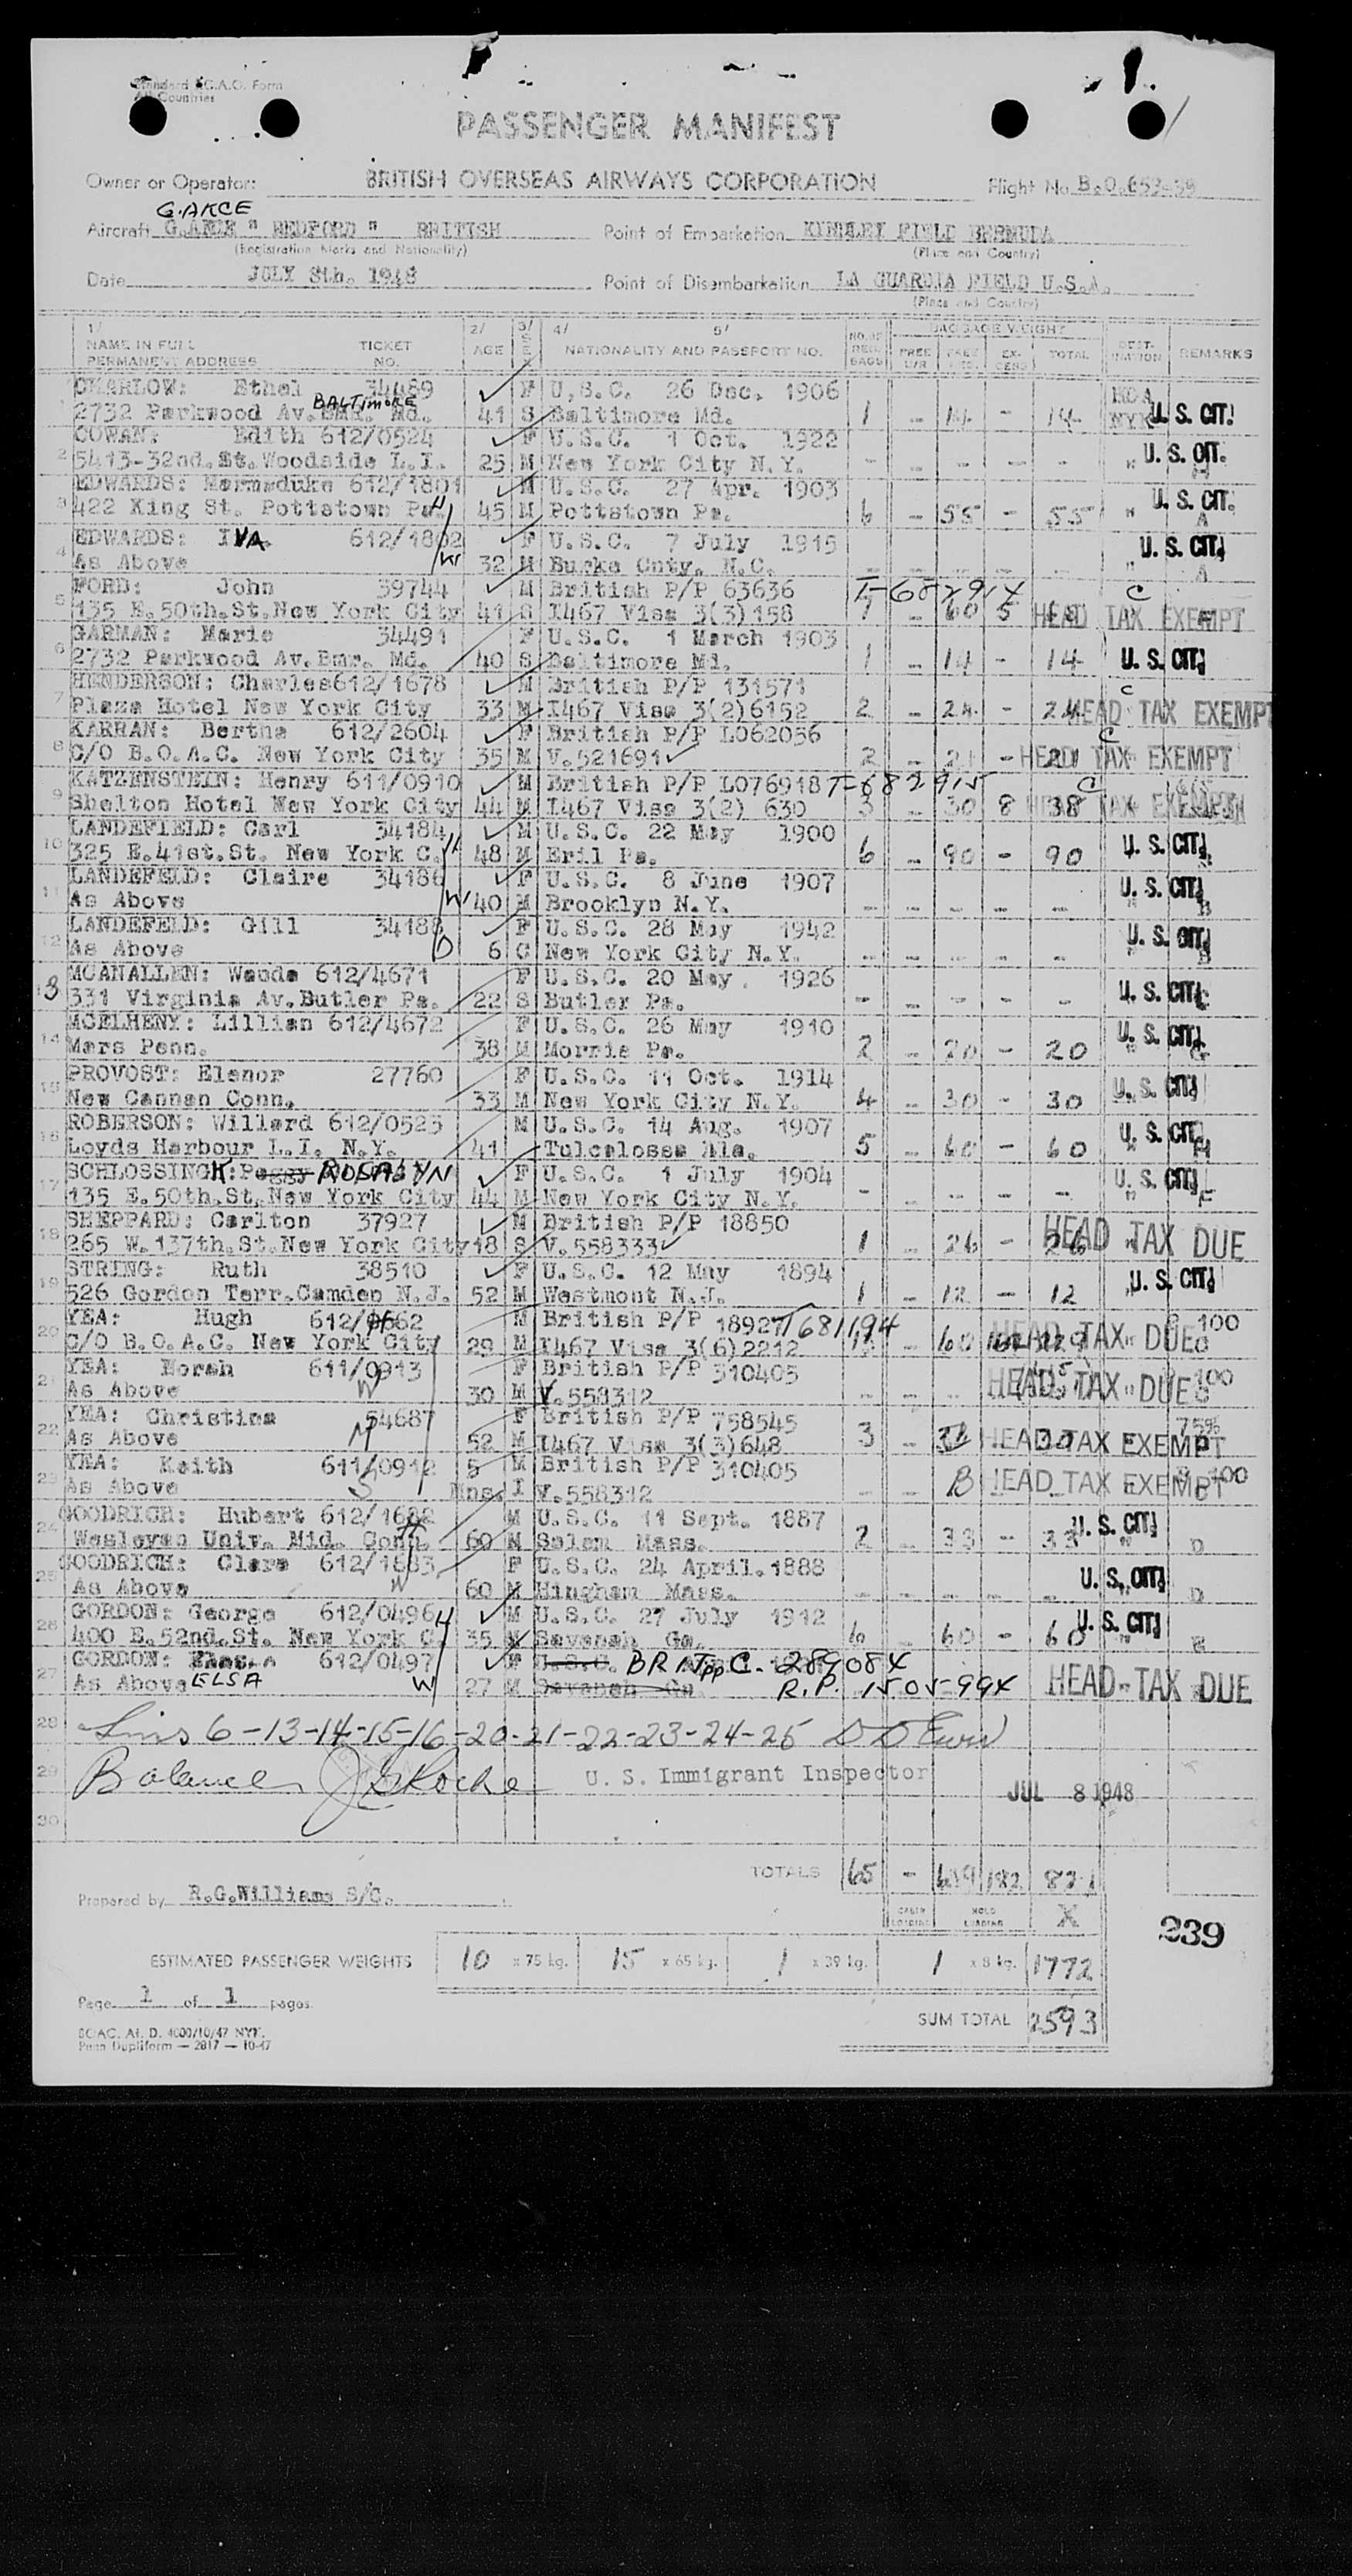 Standard I.C.A.O. Form
All Countries
PASSENGER MANIFEST
Owner or Operator: BRITISH OVERSEAS AIRWAYS CORPORATION Flight No. B.O.
G.AKCE
Aircraft " BEDFORD " BRITISH Point of Embarkation KINDLEY FIELD BERMUDA
(Registration Marks and Nationality) (Place and Country)
Date JULY 8th. 1948 Point of Disembarkation LA GUARDIA FIELD U.S.A.
(Place and Country)
1/ 2/ 3/ 4/ 5/ NO. OF REG. BAGS BAGGAGE WEIGHT DESTINATION REMARKS
NAME IN FULL TICKET AGE SEX NATIONALITY AND PASSPORT NO. EXCESS TOTAL
PERMANENT ADDRESS NO.
CHARLOW: Ethel 34489 F U.S.C. 26 Dec. 1906
BALTIMORE
2732 Parkwood Av. Md. 41 S Baltimore Md. 1 - 14 - 14 U. S. CIT.
COWAN: Edith 612/0524 F U.S.C. 1 Oct. 1922
2 5413-32nd.St.Woodside L.I. 25 M New York City N.Y. - - - - - " U. S. CIT.
EDWARDS: Marmaduke 612/1801 M U.S.C. 27 Apr. 1903
3 422 King St. Pottstown Pa. H 45 M Pottstown Pa. 6 - 55 - 55 " U. S. CIT. A
EDWARDS: IVA 612/1802 F U.S.C. 7 July 1915
4 As Above W 32 M Burke Cnty. N.C. U. S. CIT. A
FORD: John 39744 M British P/P 63636 T-682914 C
5 135 E.50th.St.New York City 41 S I467 Visa 3(3)158 - 60 5 HEAD TAX EXEMPT
GARMAN: Marie 34491 F U.S.C. 1 March 1903
6 2732 Parkwood Av.Bmr. Md. 40 S Baltimore Md. 1 - 14 - 14 U. S. CIT.
HENDERSON: Charles612/1678 M British P/P 131571 C
7 Plaza Hotel New York City 33 M I467 Visa 3(2)6152 2 - 24 - 24 HEAD TAX EXEMPT
KARRAN: Bertha 612/2604 F British P/P L062036 C
8 C/O B.O.A.C. New York City 35 M V.521691 2 - 21 - HEAD TAX EXEMPT
KATZENSTEIN: Henry 611/0910 M British P/P L076918 T-682915 C
9 Shelton Hotel New York City 44 M I467 Visa 3(2) 630 3 - 30 8 38 HEAD TAX EXEMPT
LANDEFIELD: Carl 34184 M U.S.C. 22 May 1900
10 325 E.41st.St. New York C. H 48 M Eril Pa. 6 - 90 - 90 U. S. CIT.
LANDEFELD: Claire 34186 F U.S.C. 8 June 1907
11 As Above W 40 M Brooklyn N.Y. - - - - - U. S. CIT. B
LANDEFELD: Gill 34188 F U.S.C. 28 May 1942
12 As Above D 6 C New York City N.Y. - - - - - U. S. CIT. B
MCANALLEN: Wanda 612/4671 F U.S.C. 20 May. 1926
13 331 Virginia Av.Butler Pa. 22 S Butler Pa. - - - - - U. S. CIT.
MCELHENY: Lillian 612/4672 F U.S.C. 26 May 1910
14 Mars Penn. 38 M Morris Pa. 2 - 20 - 20 U. S. CIT. G
PROVOST: Elenor 27760 F U.S.C. 11 Oct. 1914
15 New Cannan Conn. 33 M New York City N.Y. 4 - 30 - 30 U. S. CIT.
ROBERSON: Willard 612/0525 M U.S.C. 14 Aug. 1907
16 Loyds Harbour L.I. N.Y. 41 Tulcalossa Ala. 5 - 60 - 60 U. S. CIT. H
SCHLOSSINGK: Peggy ROSALYN F U.S.C. 1 July 1904
17 135 E.50th.St.New York City 44 M New York City N.Y. - - - - - U. S. CIT. F
SHEPPARD: Carlton 37927 M British P/P 18850
18 265 W.137th.St.New York City 18 S V.558333 1 - 26 - 26 HEAD TAX DUE
STRING: Ruth 38510 F U.S.C. 12 May 1894
19 526 Gordon Terr.Camden N.J. 52 M Westmont N.J. 1 - 12 - 12 U. S. CIT.
YEA: Hugh 612/ 62 M British P/P 18927 T681194 100
20 C/O B.O.A.C. New York City 29 M I467 Visa 3(6)2212 - 60 HEAD TAX DUE
YEA: Norah 611/0913 F British P/P 310405 100
21 As Above W 30 M V.558312 HEAD TAX DUE
YEA: Christina 54687 F British P/P 758545 75%
22 As Above M 52 M I467 Visa 3(3)648 3 - HEAD TAX EXEMPT
YEA: Keith 611/0912 5 M British P/P 310405 100
23 As Above S Mns. I V.558312 B HEAD TAX EXEMPT
GOODRICH: Hubert 612/1682 M U.S.C. 11 Sept. 1887
24 Wesleyan Univ. Mid. Conn. H 60 M Salem Mass. 2 - 33 - 33 U. S. CIT. D
GOODRICH: Clara 612/1683 F U.S.C. 24 April.1888
25 As Above W 60 M Hingham Mass. U. S. CIT. D
GORDON: George 612/0496 H M U.S.C. 27 July 1912
26 400 E.52nd.St. New York C. 35 M Savanah Ga. 6 - 60 - 60 U. S. CIT. E
GORDON: 612/0497 F U.S.C. BRIT pp C. 289084
27 As Above ELSA W 27 M Savanah Ga R.P. 1505994 HEAD TAX DUE
28 Lines 6-13-14-15-16-20-21-22-23-24-25
29 Balance J Roche U. S. Immigrant Inspector JUL 8 1948
30
TOTALS 65 - 639 182 821
Prepared by R.G.Williams S/C.
CABIN LOADING HOLD LOADING X
239
ESTIMATED PASSENGER WEIGHTS 10 x 75 kg. 15 x 65 kg. 1 x 39 kg. 1 x 8 kg. 1772
Page 1 of 1 pages
SUM TOTAL 2593
BOAC. Af. D. 4000/10/47 NYF.
Penn Dupliform — 2817 — 10-47